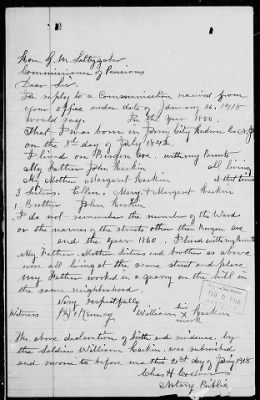 Hon. G. M. Saltzgaber
Commissioner of Pensions
Dear Sir.
In reply to a Communication received from
your office under date of January 16, 1918
would say. For the year 1850.
That I was born in Jersey City Hudson Co N.J.
on the 3rd day of July 1842.
I lived on Bergen Ave. with my Parents
My Father John Harkin all living
My Mother Margaret Harkin at that time
3 Sisters. Ellen. Mary & Margaret Harkin
1 Brother John Harkin
I do not remember the number of the Ward
or the names of the streets other than Bergen Ave
and the year 1860. I lived with my Parents
My Father, Mother, Sisters and brother as above
were all living at the same street and place
My Father worked in a quarry on the hill in
the same neighborhood.
Very Respectfully
Witness his
William X Harkin
mark
The above declaration of birth and residence, by
the Soldier William Harkin, was subscribed
and sworn to before me this 21st day of Jan'y 1918
Chas H
Notary Public